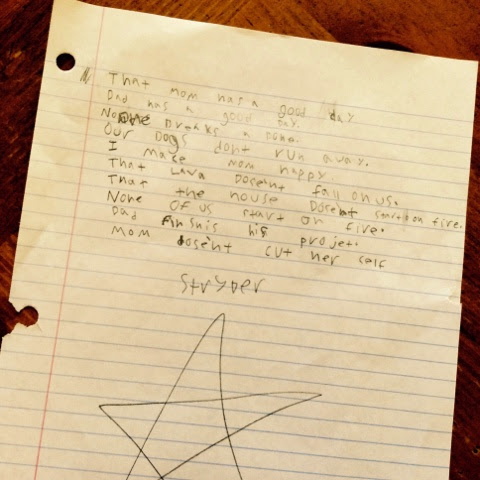 That mom has a good day
Dad has a good day.
No one Breaks a bone.
Our Dogs dont run away.
I make mom happy.
That Lava Doseint fall on us.
That the house Dosent start on fire.
None of us start on fire.
Dad finshis his projet.
Mom dosent cut her self
Stryper